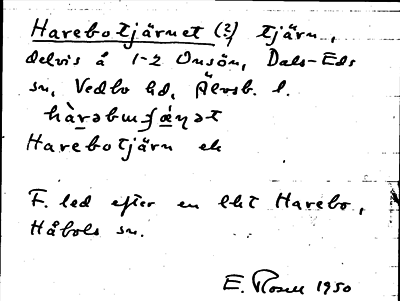 Harebotjärnet (2) tjärn,
delvis å 1-2 Onsön, Dals-Eds
sn, Vedbo hd, Älvsb. l.
hàrəbuʃǽṇət
Harebotjärn ek
F. led efter en lht Harebo,
Håbols sn.
E. Rosell 1950